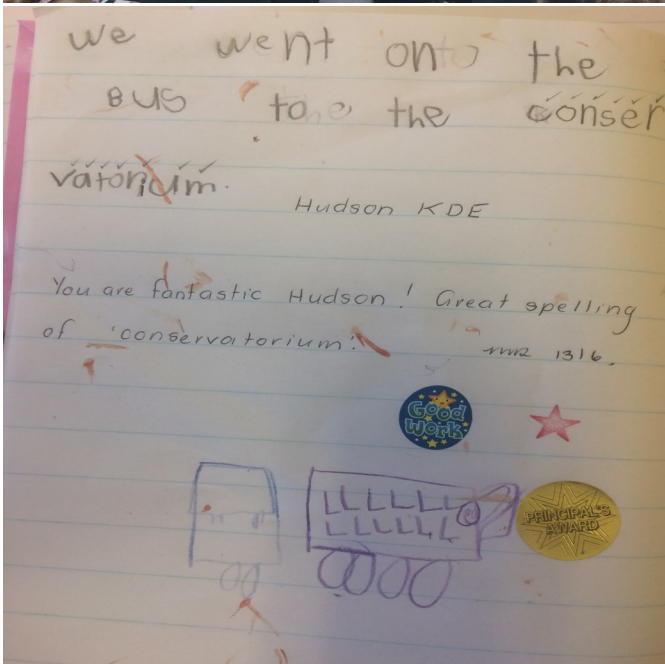 we went onto the
BUS to the the conser
vatorium.
Hudson KDE
You are fantastic Hudson! Great spelling
of 'conservatorium'.
13/6.
Good
Work
PRINCIPAL'S
AWARD